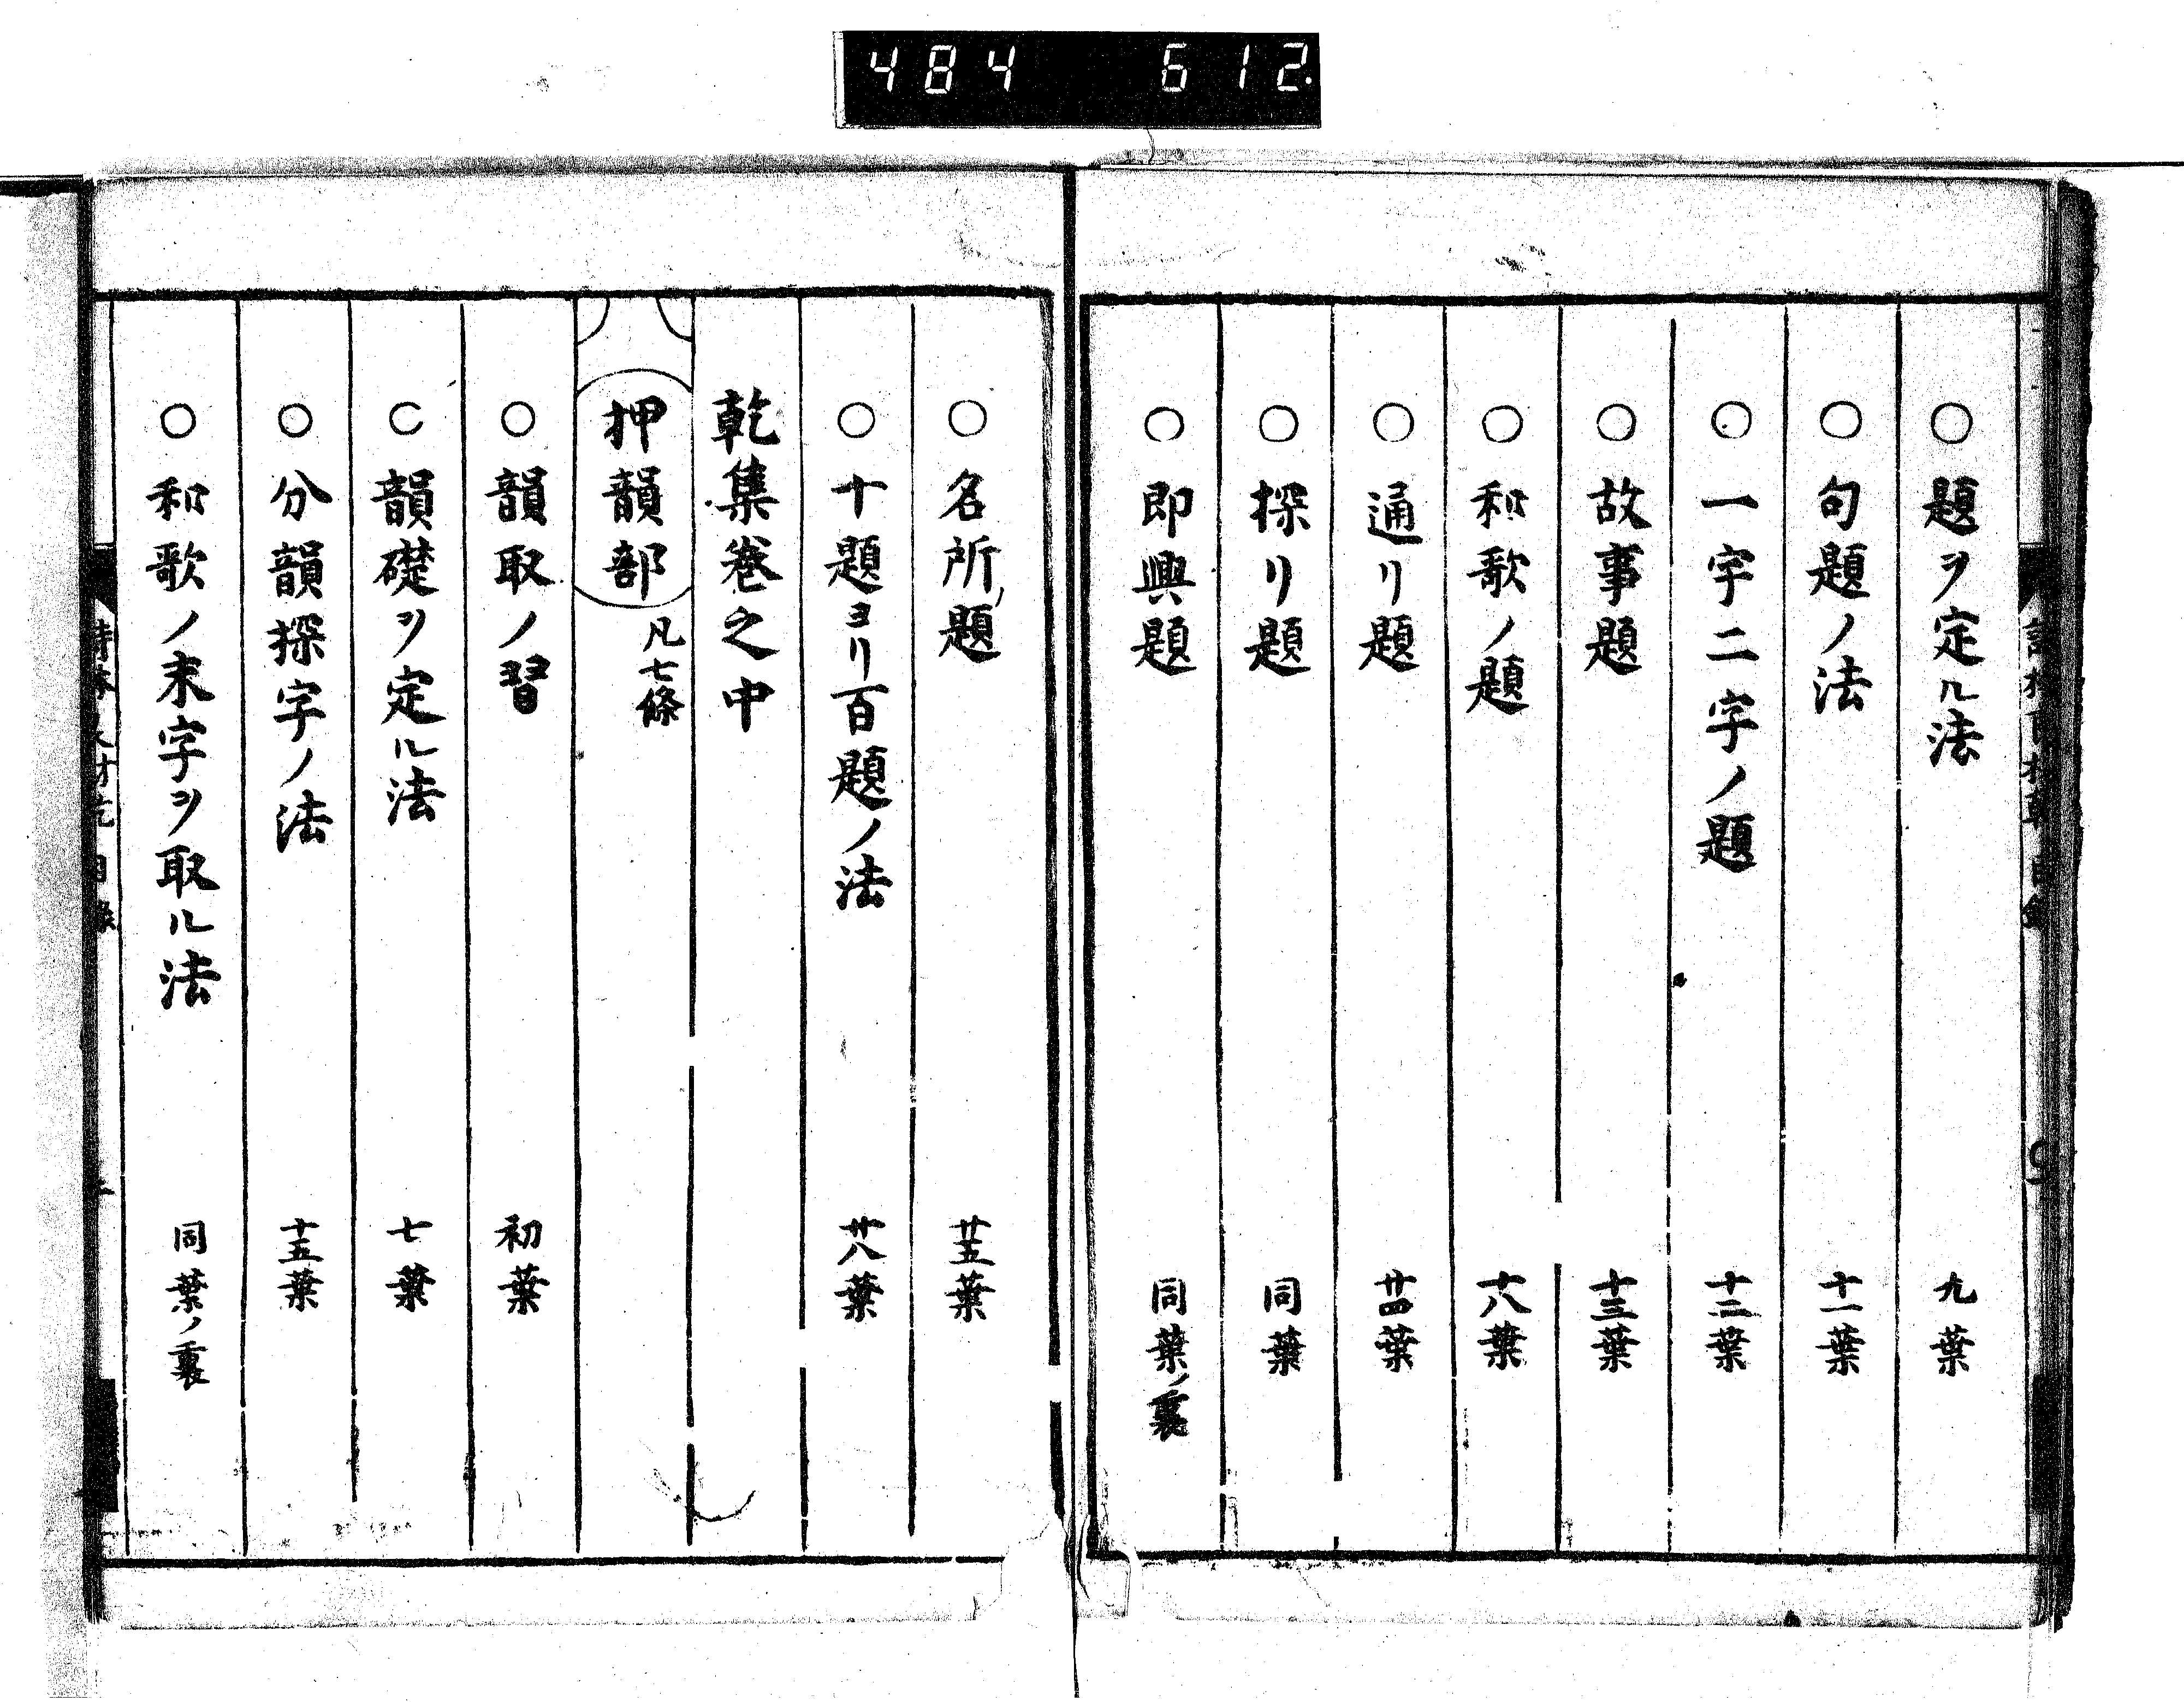 484 612.
○題ヲ定ル法 九葉
○句題ノ法 十一葉
○一字二字ノ題 十二葉
○故事題 十三葉
○和歌ノ題 十八葉
○通リ題 廿四葉
○探リ題 同葉
○即興題 同葉ノ裏
○名所ノ題 廿五葉
○十題ヨリ百題ノ法 廿八葉
乾集巻之中
押韻部 凡七條
○韻取ノ習 初葉
○韻礎ヲ定ル法 七葉
○分韻探字ノ法 十五葉
○和歌ノ末字ヲ取ル法 同葉ノ裏